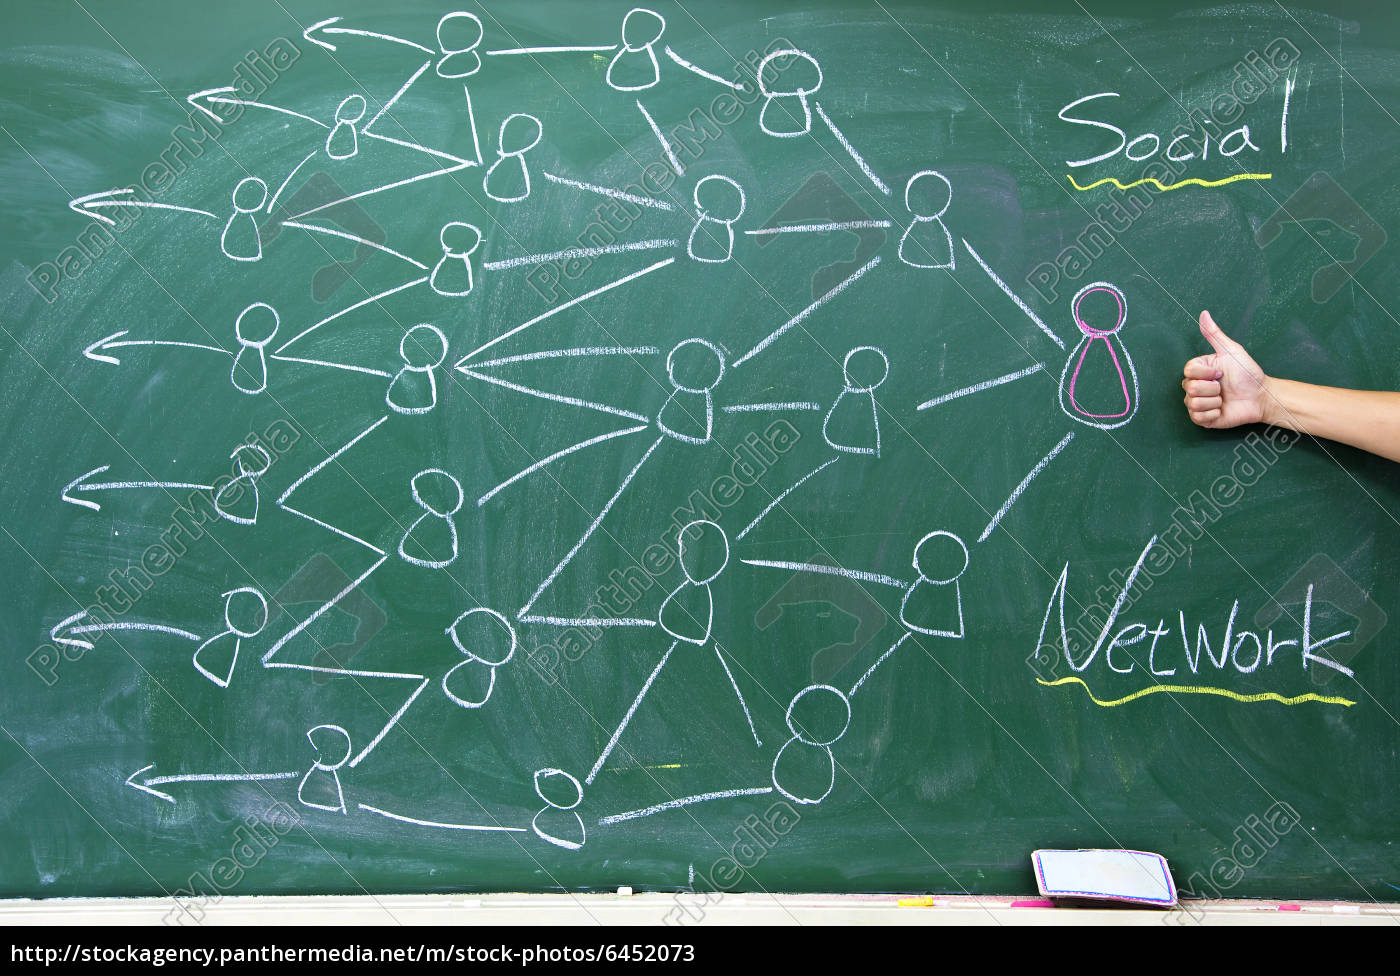 Social
Network
PantherMedia
http://stockagency.panthermedia.net/m/stock-photos/6452073